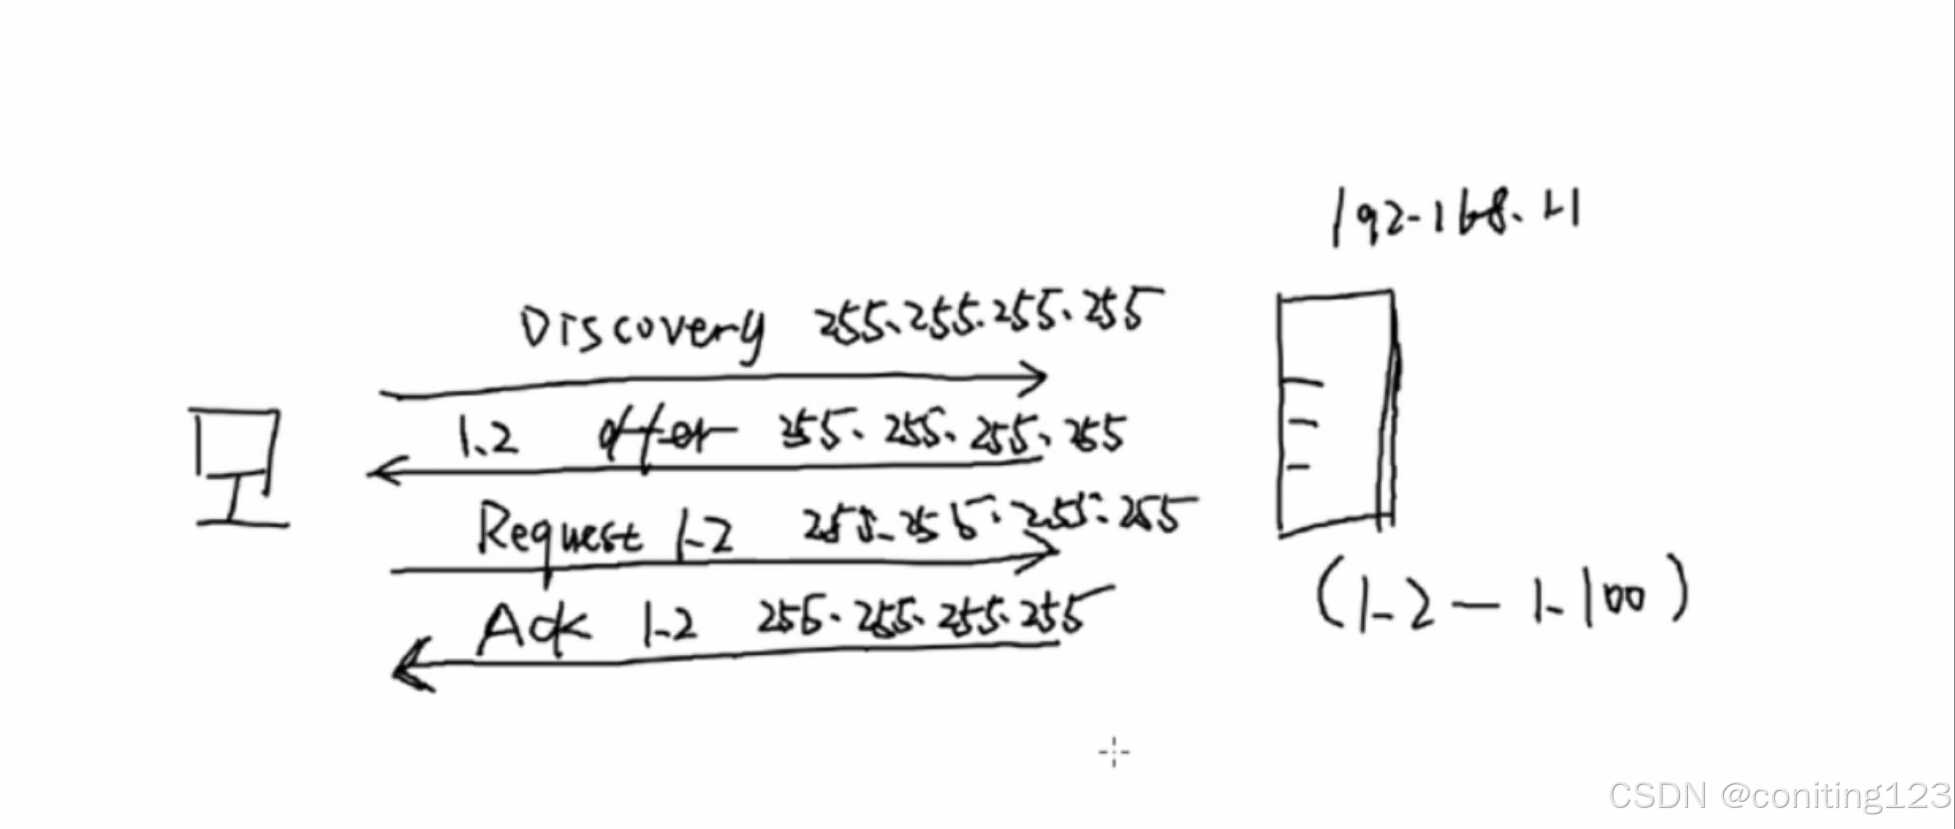 192.168.1.1
Discovery 255.255.255.255
1.2 offer 255.255.255.255
Request 1.2 255.255.255.255
Ack 1.2 255.255.255.255
(1.2 — 1.100)
CSDN @coniting123